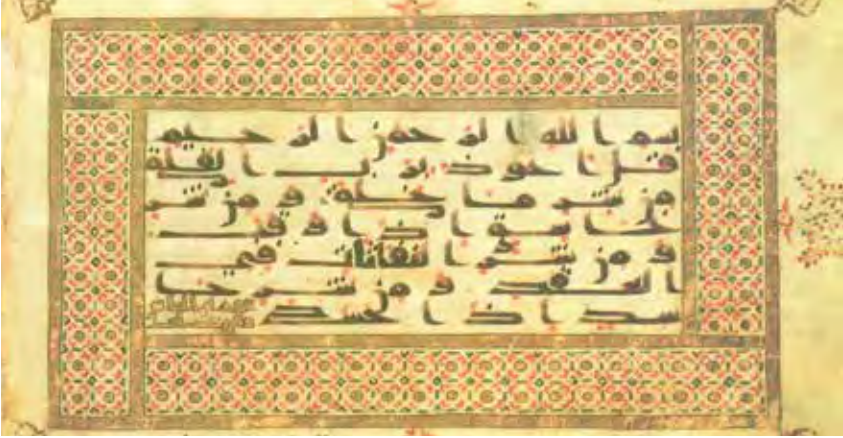 بسم الله الرحمن الرحيم
قل اعوذ برب الفلق
من شر ما خلق و من شر
غاسق اذا وقب
و من شر النفاثات في
العقد و من شر حا
سد اذا حسد